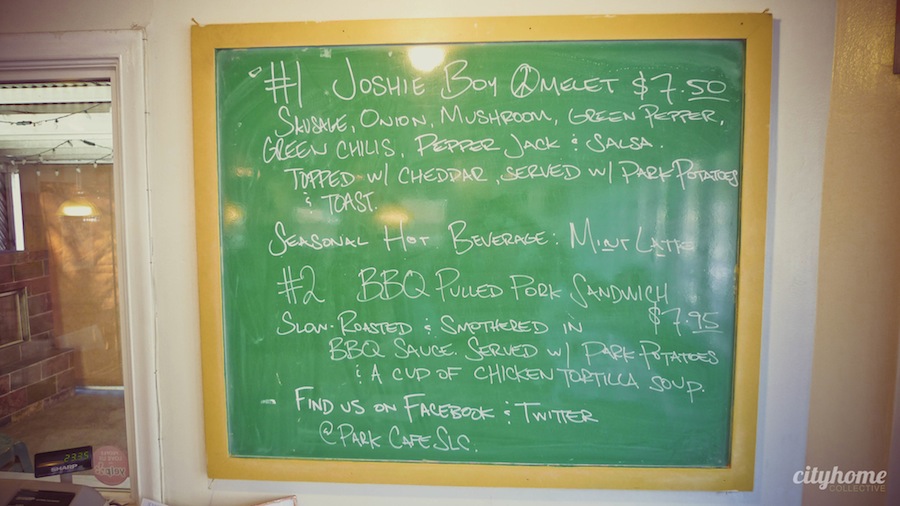 #1 Joshie Boy Omelet $7.50
Sausage, Onion, Mushroom, Green Pepper,
Green Chilis, Pepper Jack & Salsa.
Topped w/ Cheddar, served w/ Park Potatoes
& Toast.
Seasonal Hot Beverage: Mint Latte
#2 BBQ Pulled Pork Sandwich
$7.95
Slow-Roasted & Smothered in
BBQ Sauce. Served w/ Park Potatoes
& a cup of chicken tortilla soup.
- Find us on Facebook & Twitter
@ParkCafeSLC.
23.35
SHARP
cityhome
COLLECTIVE